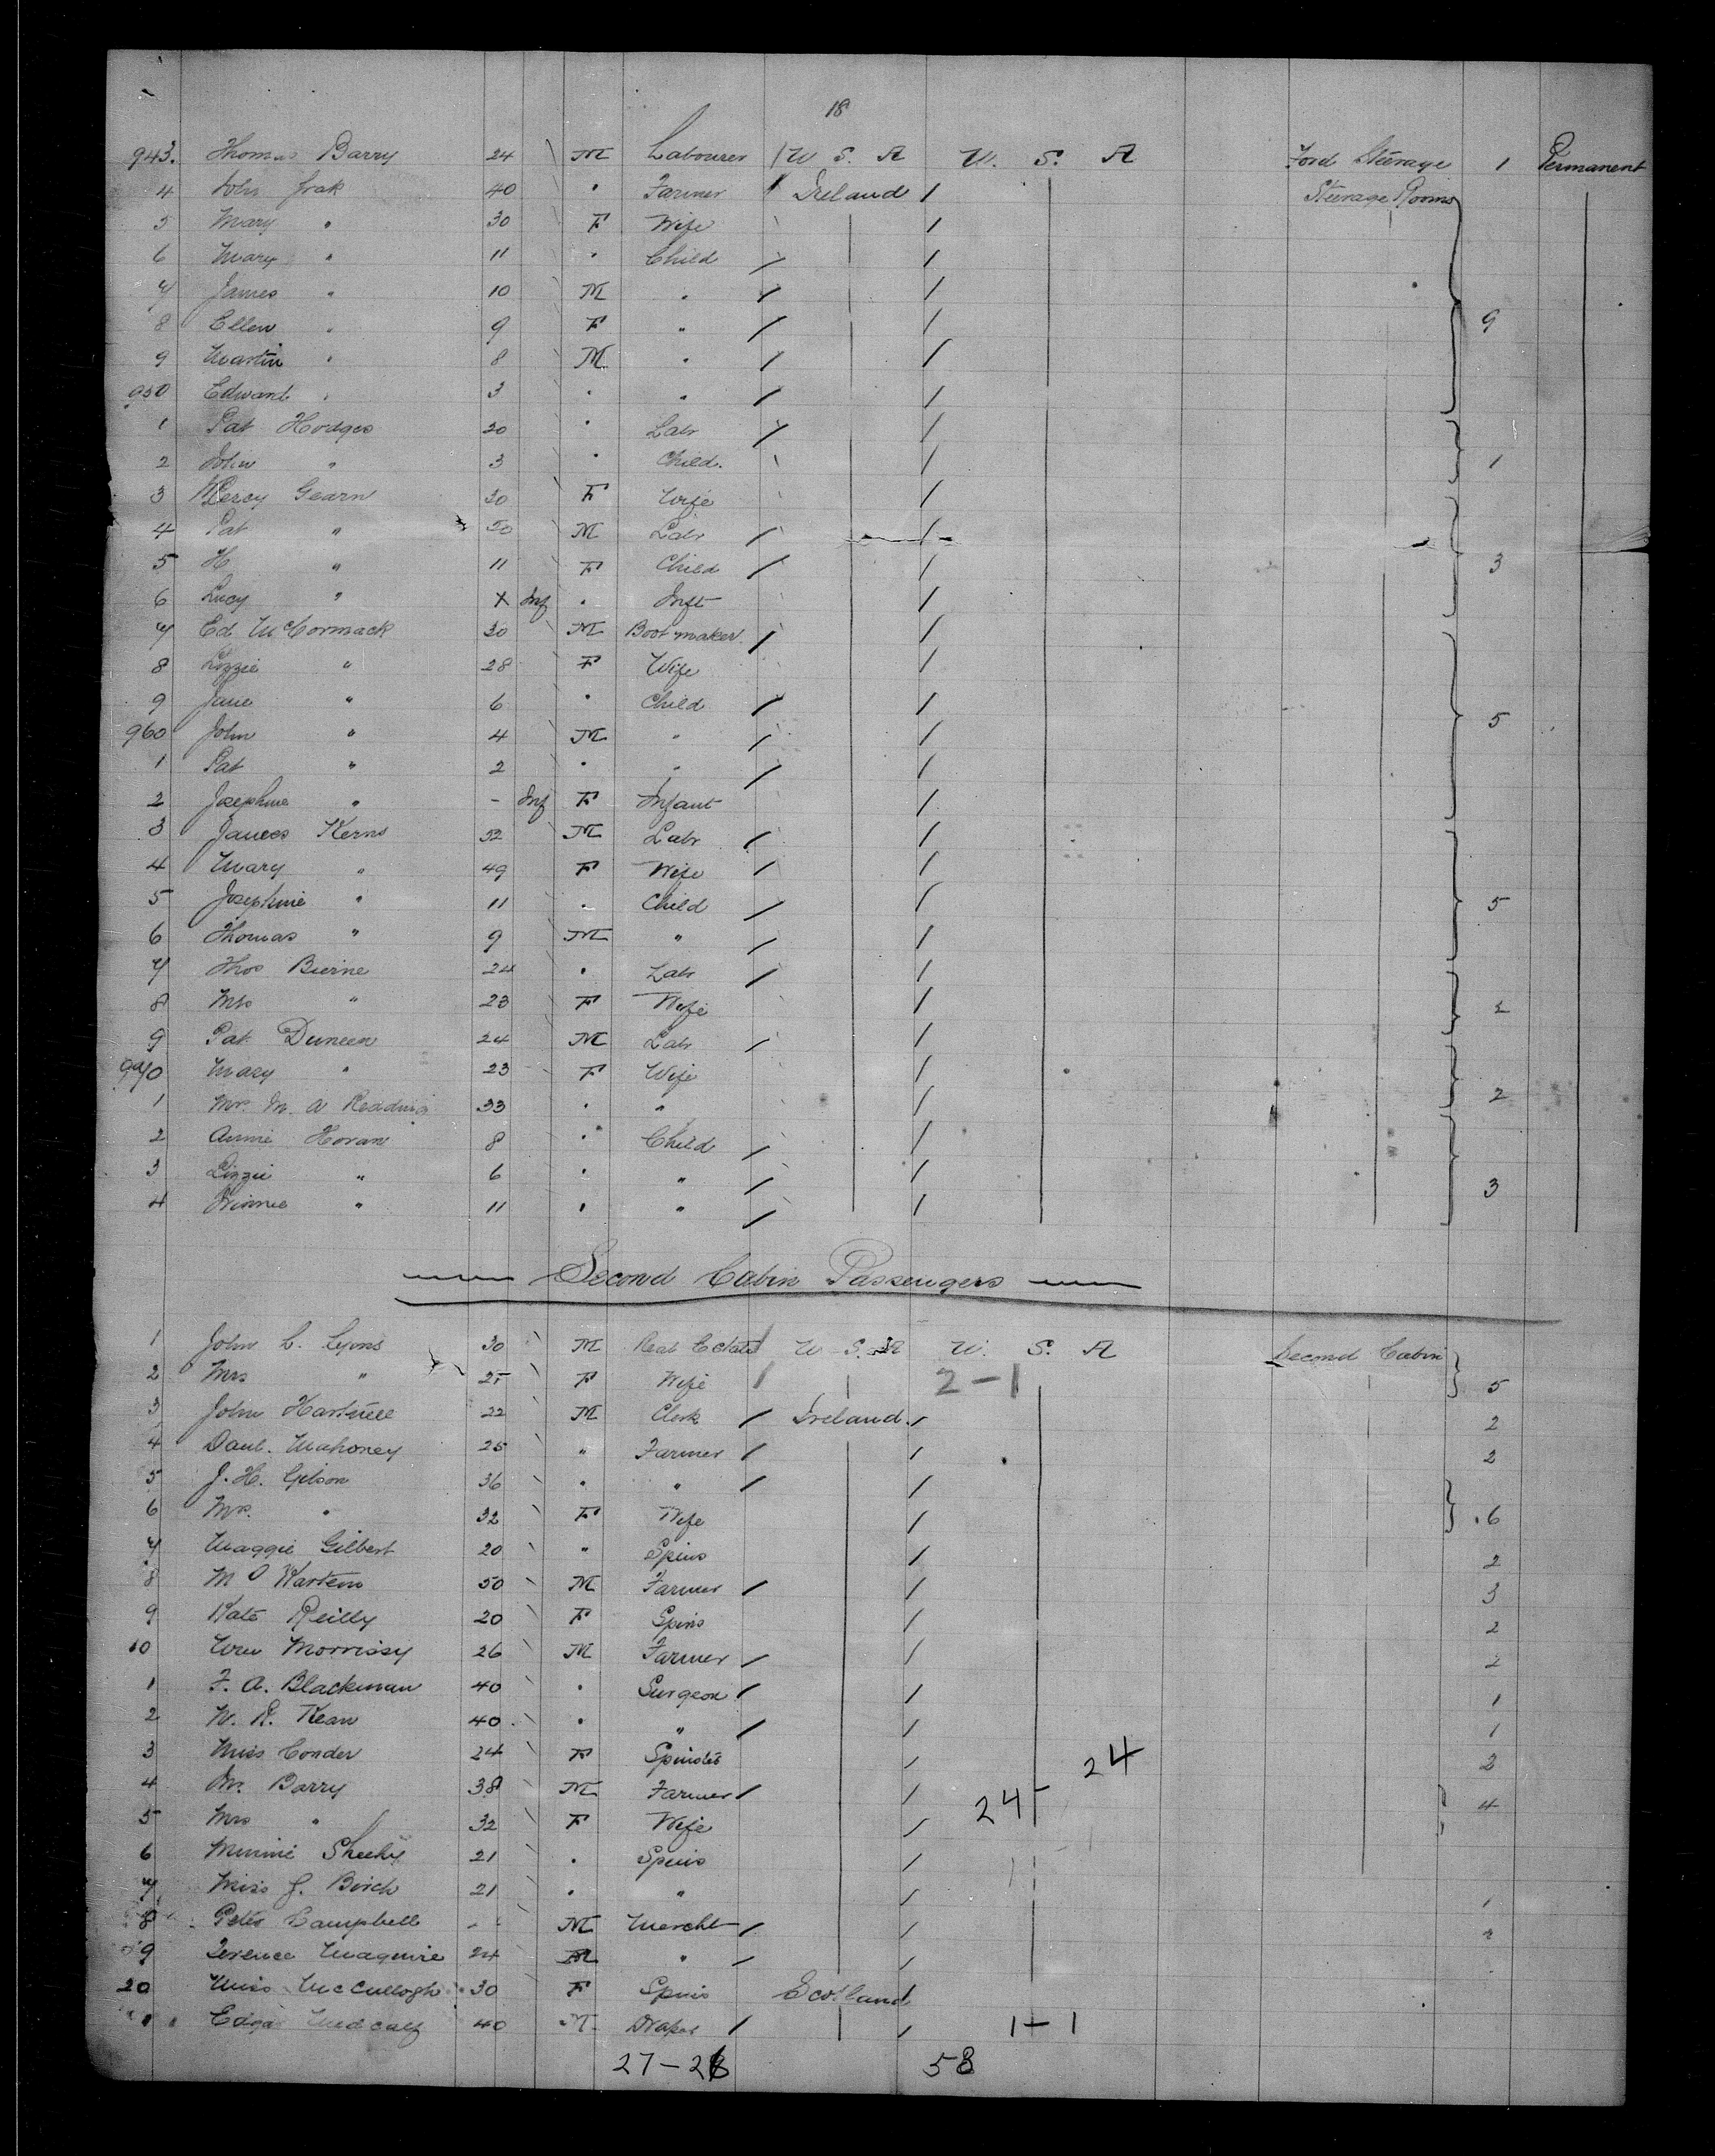 18
943. Thomas Barry 24 M Labourer U S A U. S. A Ford Steerage 1 Permanent
4 John 40 " Farmer Ireland Steerage Rooms
5 Mary " 30 F Wife
6 Mary " 11 " Child
7 James " 10 M "
8 Ellen " 9 F " 9
9 Martin " 8 M "
950 Edward " 3 " "
1 Pat Hodges 20 " Labr
2 John " 3 " Child. 1
3 Gearn 30 F Wife
4 Pat " 50 M Labr
5 H " 11 F Child 3
6 Lucy " X Inf " Inft
7 Ed McCormack 30 M Boot maker
8 Lizzie " 28 F Wife
9 Jane " 6 " Child
960 John " 4 M " 5
1 Pat " 2 " "
2 Josephine " - Inf F Infant
3 James Kerns 52 M Labr
4 Mary " 49 F Wife
5 Josephine " 11 " Child 5
6 Thomas " 9 M "
7 Thos Beirne 24 " Labr
8 Mrs " 23 F Wife 2
9 Pat Duneen 24 M Labr
970 Mary " 23 F Wife
1 Mrs M. A Reading 33 " " 2
2 Annie Horan 8 " Child
3 Lizzie " 6 " "
4 Winnie " 11 " " 3
Second Cabin Passengers
1 John L. Lyons 30 M Real Estate U S. A U. S. A Second Cabin
2 Mrs " 25 F Wife 2-1 5
3 John Hartnell 22 M Clerk Ireland 2
4 Danl. Mahoney 25 " Farmer 2
5 J. H. Gibson 36 " "
6 Mrs. " 32 F Wife 6
7 Maggie Gilbert 20 " Spins 2
8 M 50 M Farmer 3
9 Kate Reilly 20 F Spins 2
10 Wm Morrissy 26 M Farmer 2
1 F. A. Blackman 40 " Surgeon 1
2 W. R. Kean 40 " " 1
3 Miss Conder 24 F Spinster 24 2
4 Mr. Barry 38 M Farmer 24 4
5 Mrs " 32 F Wife
6 Minnie Sheehy 21 " Spins
7 Miss J. Birch 21 " " 1
8 Peter Campbell - M Mercht 2
19 Terence Maguire 24 M "
20 Miss McCullogh 30 F Spins Scotland
1 Edgar Medcalf 40 M Draper 1-1
27-28 58